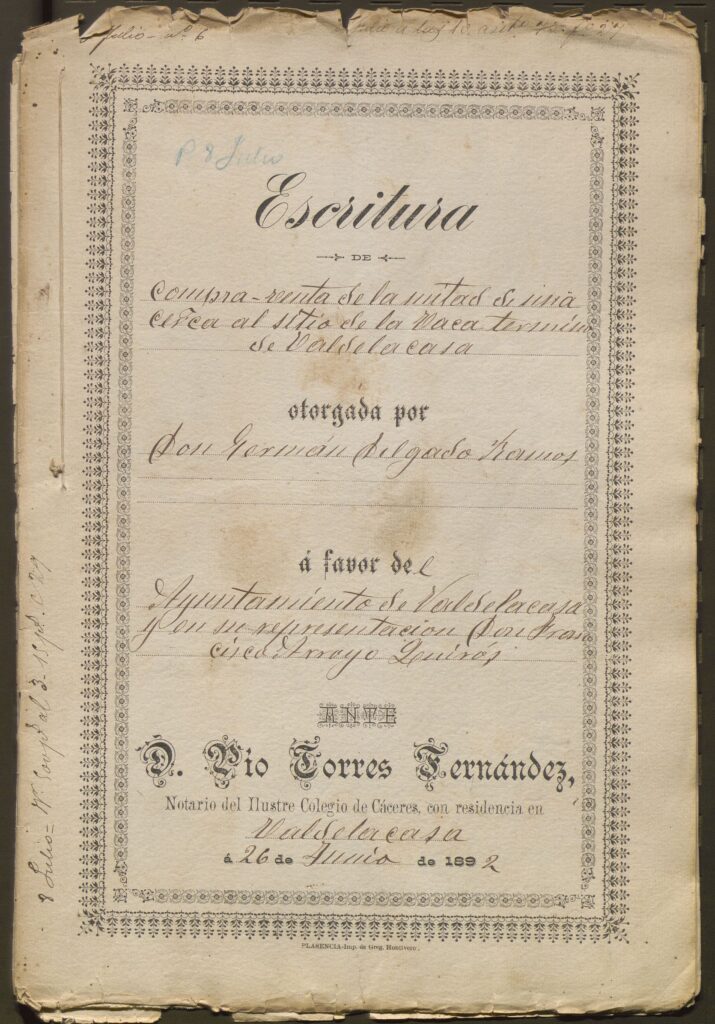 Julio - nº 6
P 8 Julio
Escritura
DE
compra-venta de la mitad de una
cerca al sitio de la Vaca termino
de Valdelacasa
otorgada por
Don Germán Delgado Ramos
á favor del
Ayuntamiento de Valdelacasa
y en su representacion Don Fran
cisco Arroyo Quiros
ANTE
D. Pio Torres Fernández,
Notario del Ilustre Colegio de Cáceres, con residencia en
Valdelacasa
á 26 de Junio de 1892
PLASENCIA-Imp. de Greg. Hontivero.
8 Julio =